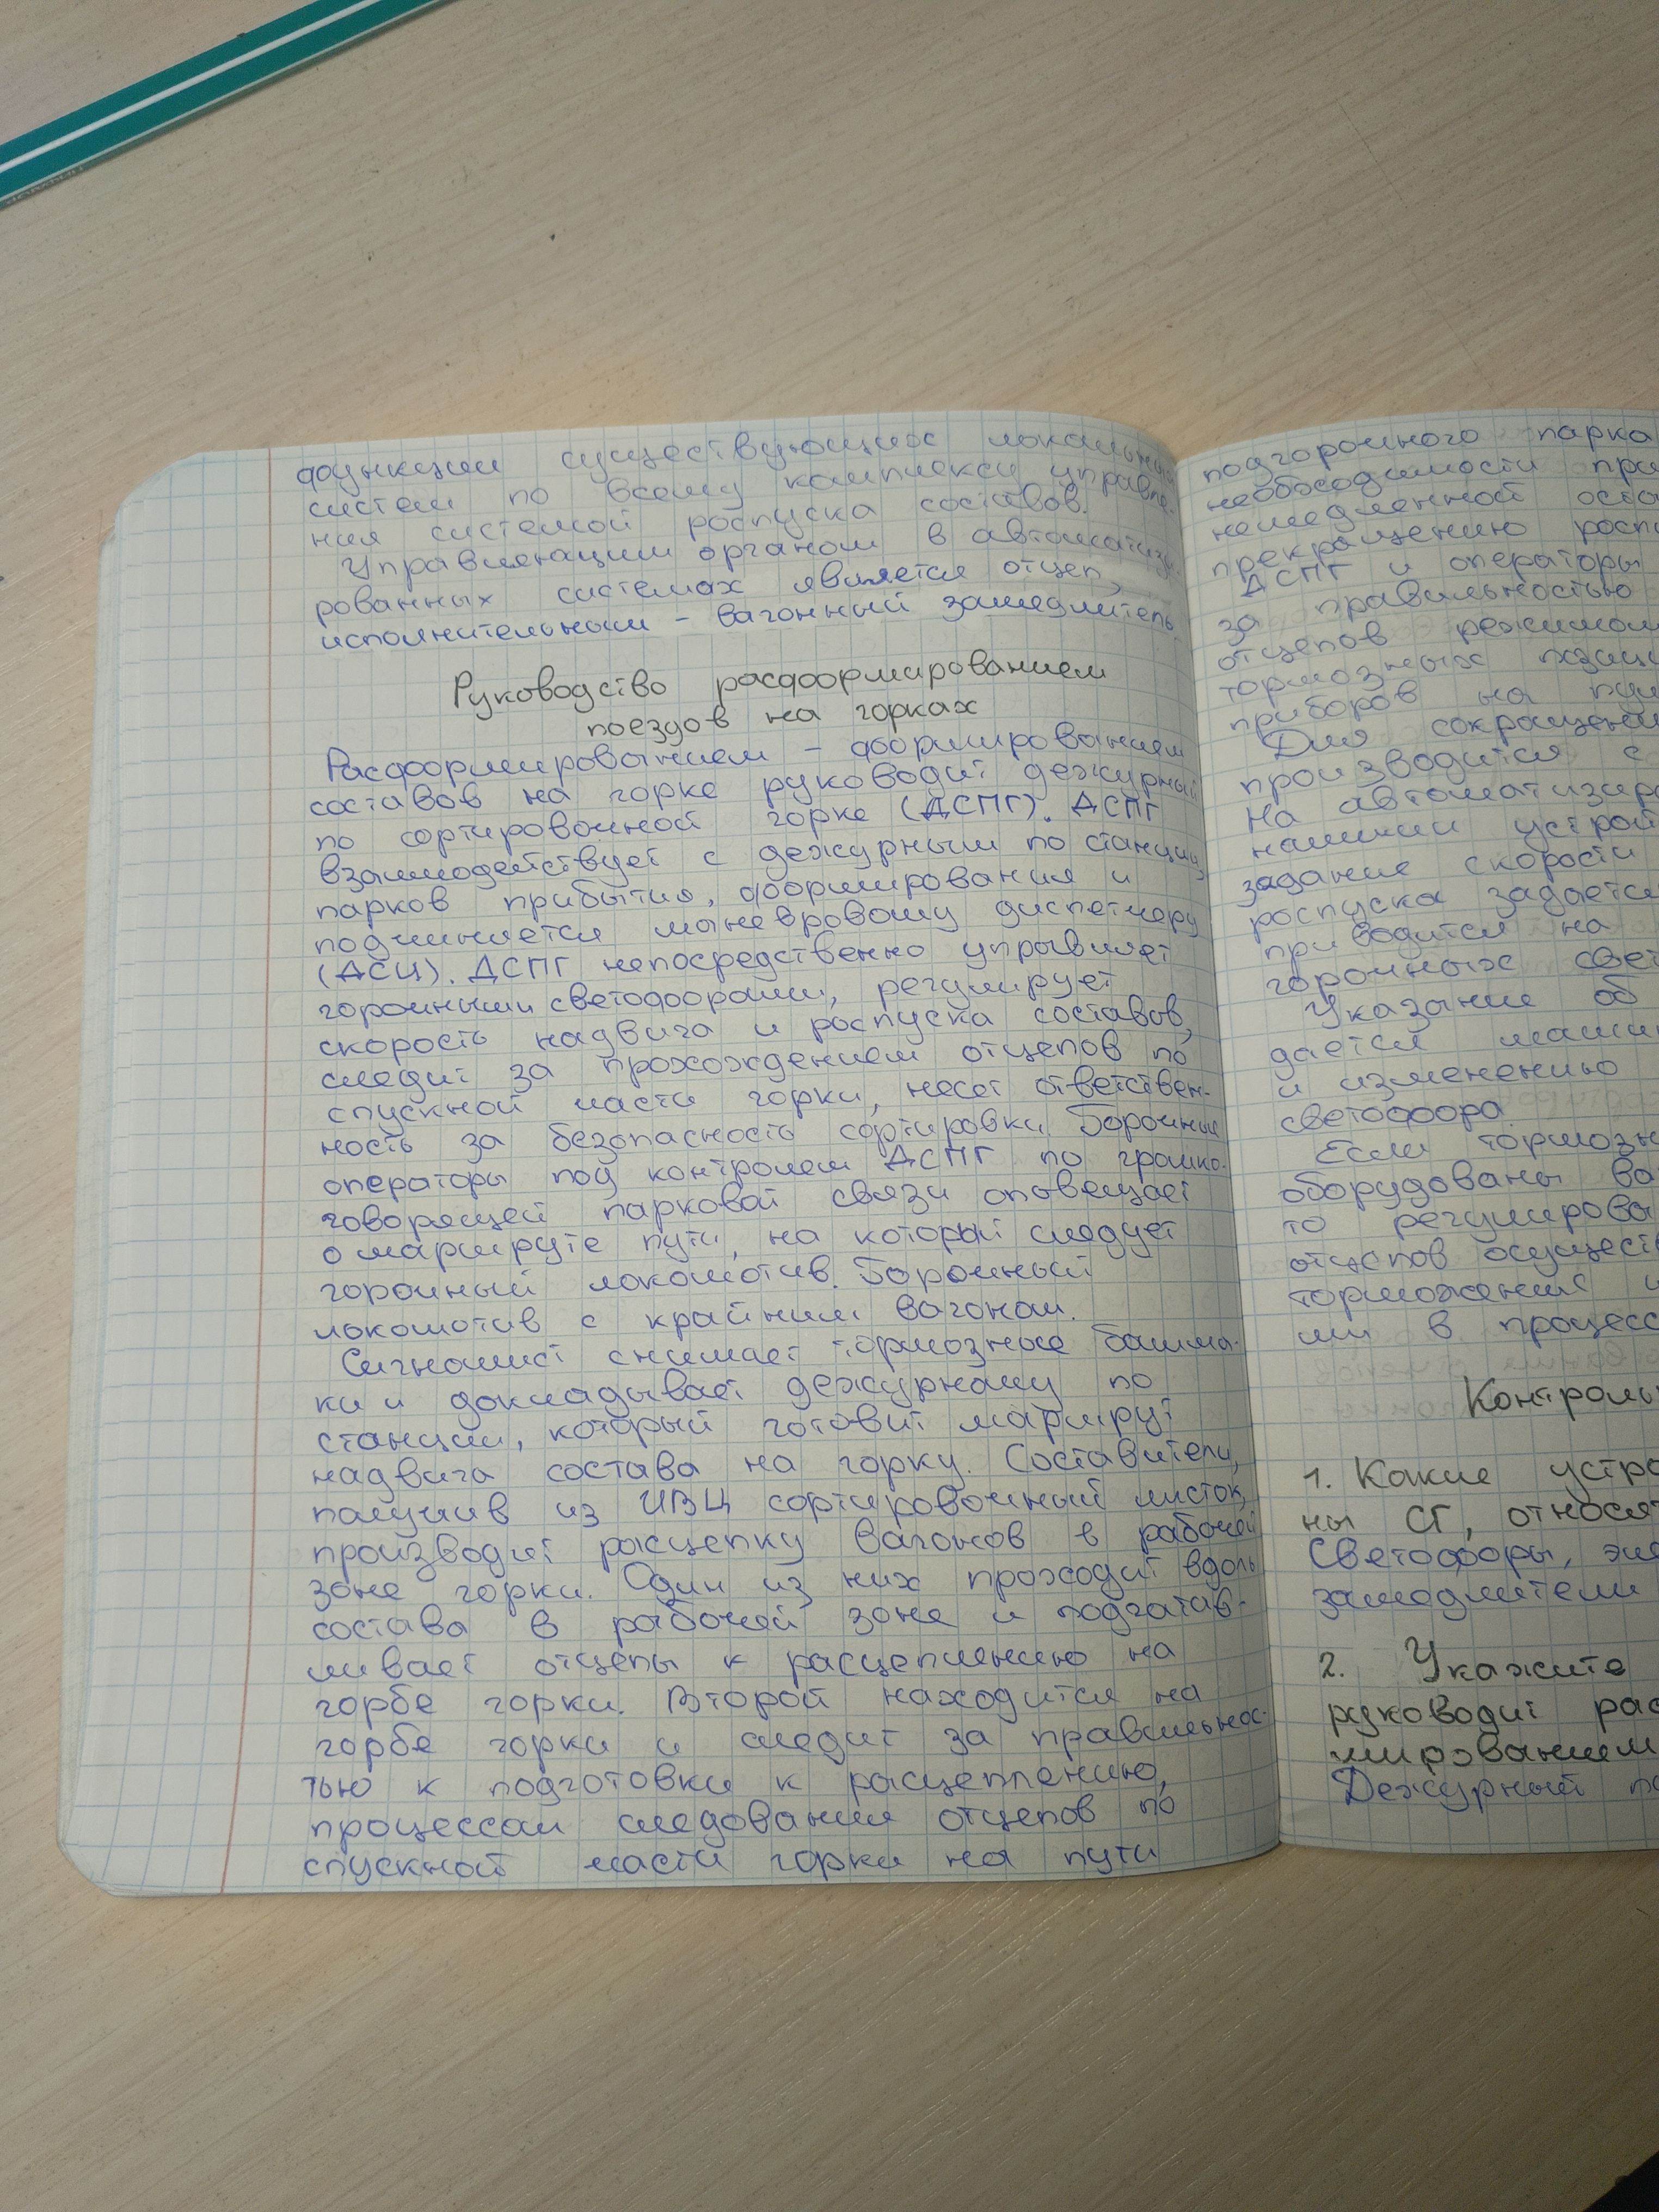 функции существующих локальных
систем по всему комплексу управле-
ния системой роспуска составов.
Управляющим органом в автоматизи-
рованных системах является отцеп,
исполнительным - вагонный замедлитель.
Руководство расформированием
поездов на горках
Расформированием - формированием
составов на горке руководит дежурный
по сортировочной горке (ДСПГ). ДСПГ
взаимодействует с дежурным по станции,
парков прибытия, формирования и
подчиняется маневровому диспетчеру
(ДСЦ). ДСПГ непосредственно управляет
горочными светофорами, регулирует
скорость надвига и роспуска составов,
следит за прохождением отцепов по
спускной части горки, несет ответствен-
ность за безопасность сортировки. Горочные
операторы под контролем ДСПГ по громко-
говорящей парковой связи оповещает
о маршруте пути, на который следует
горочный локомотив. Горочный
локомотив с крайним вагоном.
Сигналист снимает тормозные башма-
ки и докладывает дежурному по
станции, который готовит маршрут
надвига состава на горку. Составители,
получив из ИВЦ сортировочный листок,
производит расцепку вагонов в рабочей
зоне горки. Один из них проходит вдоль
состава в рабочей зоне и подгатав-
ливает отцепы к расцеплению на
горбе горки. Второй находится на
горбе горки и следит за правильнос-
тью к подготовки к расцеплению,
процессом следования отцепов по
спускной части горки на пути
подгорочного парка
необходимости при
немедленной оста
прекращению росп
ДСПГ и операторы
за правильностью
отцепов режимом
тормозных позици
приборов на пул
Для сокращени
производится с
На автоматизиро
нашими устрой
задание скорости
роспуска задается
приводится на
горочных свет
Указание об
дается маши
и изменению
светофора.
Если тормозн
оборудованы ва
то регулирова
отцепов осущест
торможения и
ми в процесс
Контроль
1. Какие устро
ны СГ, относят
Светофоры, эле
замедлители
2. Укажите
руководит рас
мированием
Дежурный по